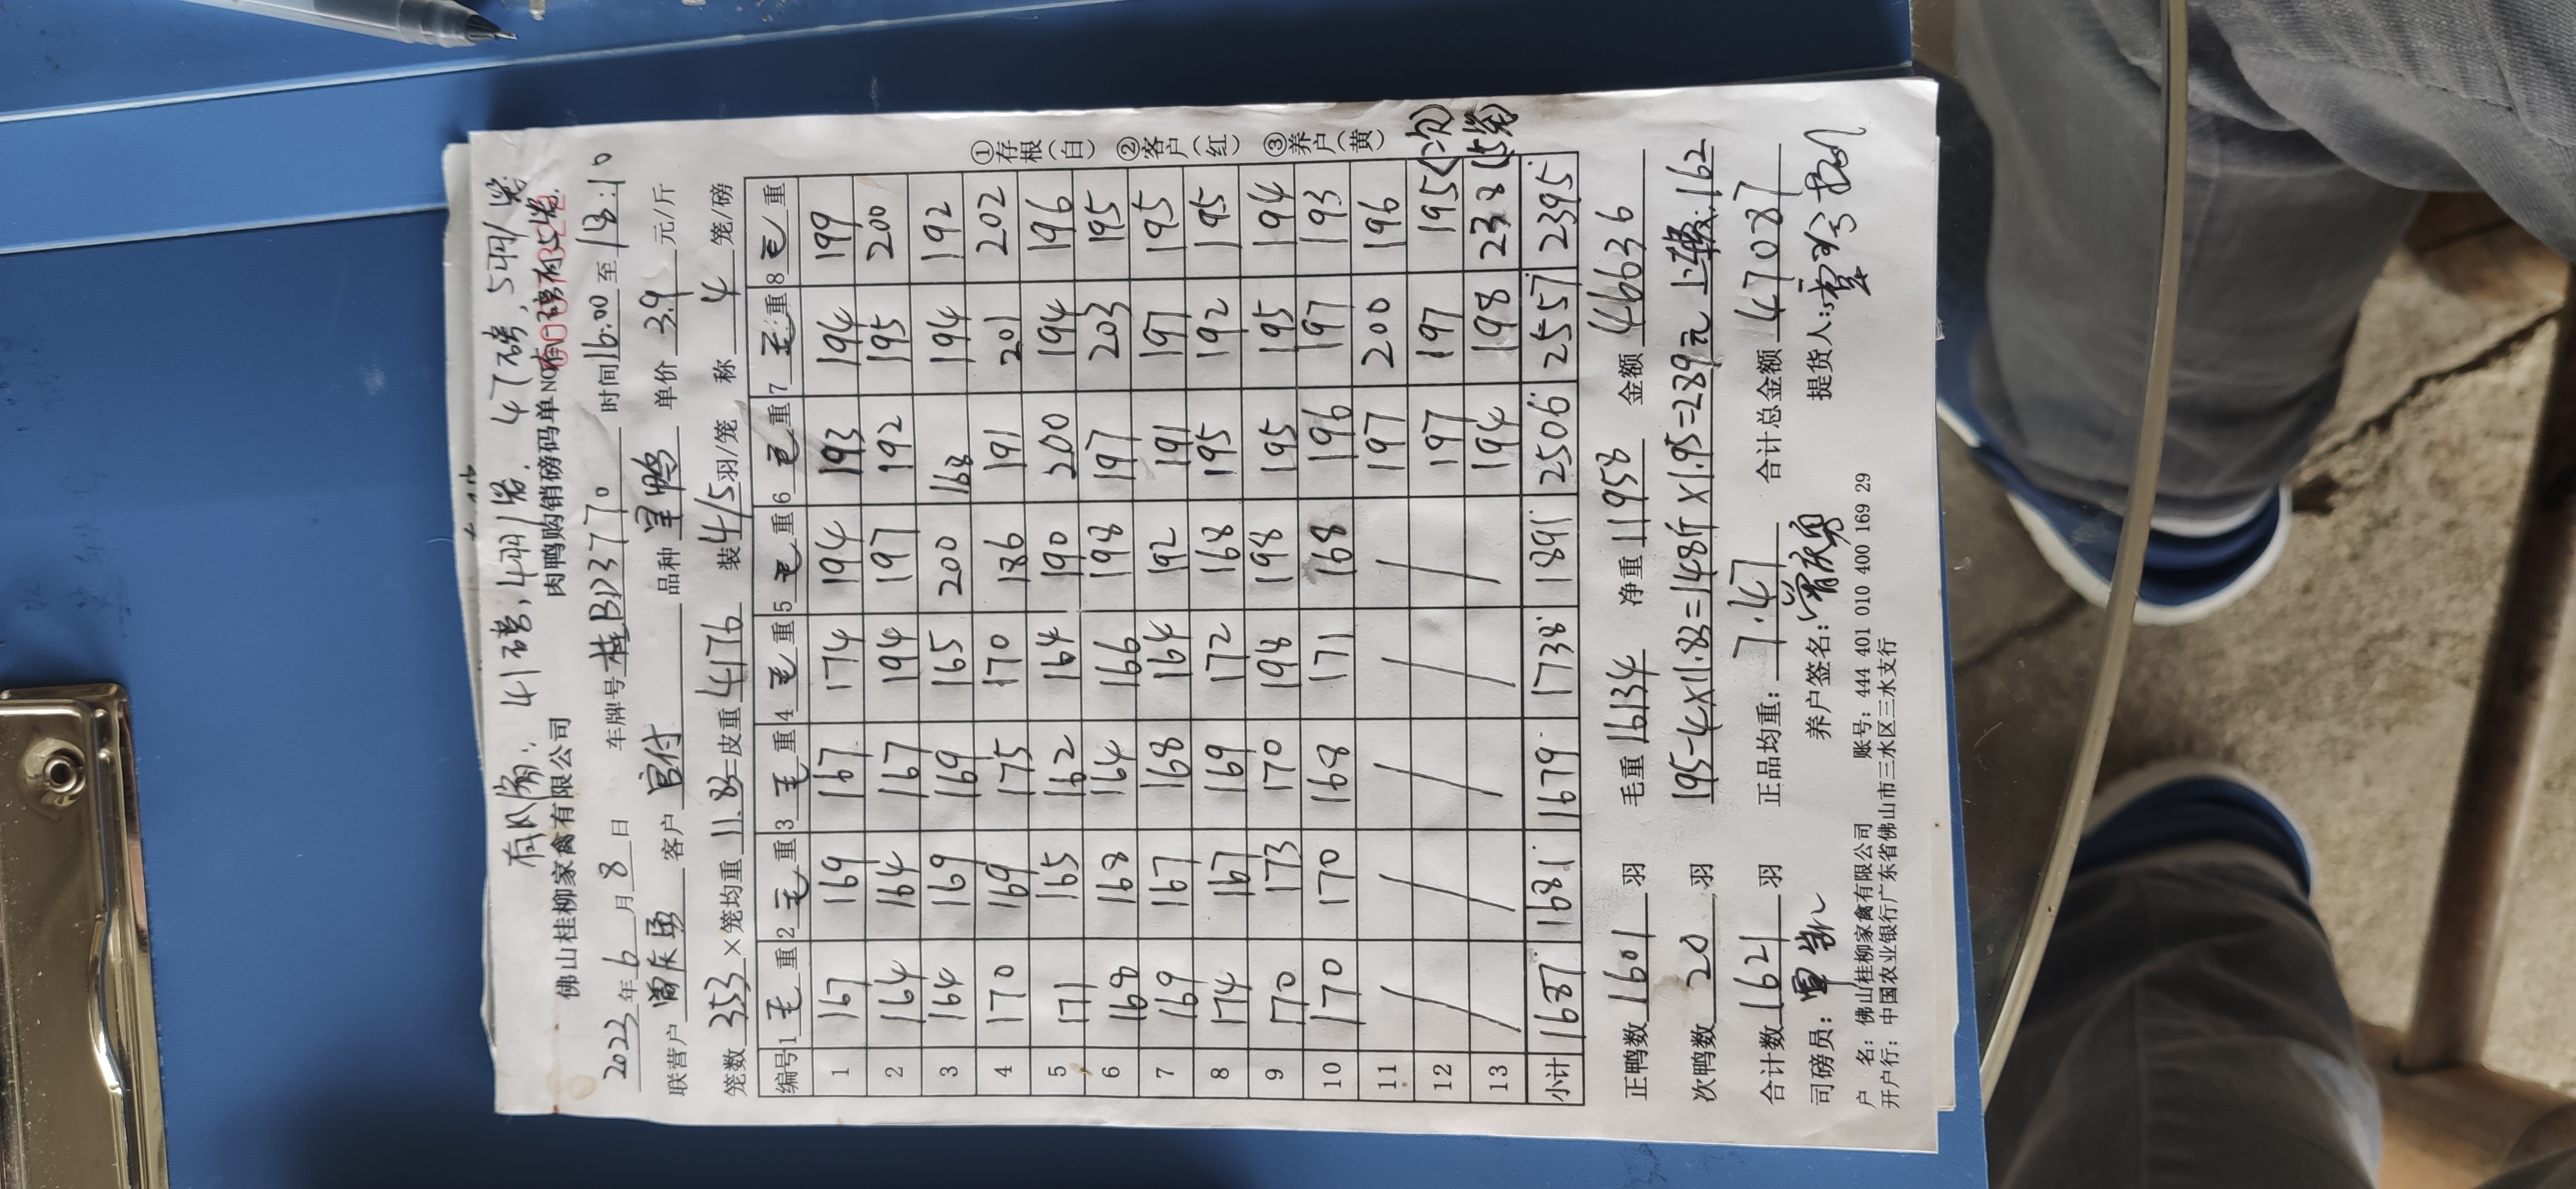 有风筛: 41磅, 4羽/笼. 47磅, 5羽/笼
佛山桂柳家禽有限公司 肉鸭购销磅码单 NO 有1磅有5笼.
2022年6月8日 车牌号桂BD3770 时间16:00至18:10
联营户 客户 宫付 品种 单价3.9元/斤
笼数353×笼均重11.83=皮重4176 装4/5羽/笼 称4笼/磅
编号 1毛重 2毛重 3毛重 4毛重 5毛重 6毛重 7毛重 8毛重
1 167 169 167 174 194 193 194 199
2 164 164 167 194 197 192 195 200
3 164 169 169 165 200 168 194 192
4 170 169 175 170 186 191 201 202
5 171 165 162 164 190 200 194 196
6 168 168 164 166 198 197 203 195
7 169 167 168 164 192 191 197 195
8 174 167 169 172 168 195 192 195
9 170 173 170 198 198 195 195 194
10 170 170 168 171 168 196 197 193
11 / / / / / 197 200 196
12 / / / / / 197 197 195(次)
13 / / / / / 194 198 238(5笼)
小计 1687 1681 1679 1738 1891 2506 2557 2395
①存根(白) ②客户(红) ③养户(黄)
正鸭数1601羽 毛重16134 净重11958 金额46636
次鸭数20羽 195-4×11.83=148斤×1.95=289元 上车费:162
合计数1621羽 正品均重:7.47 合计总金额47087
司磅员: 养户签名: 提货人:
户 名: 佛山桂柳家禽有限公司 账号: 444 401 010 400 169 29
开户行: 中国农业银行广东省佛山市三水区三水支行